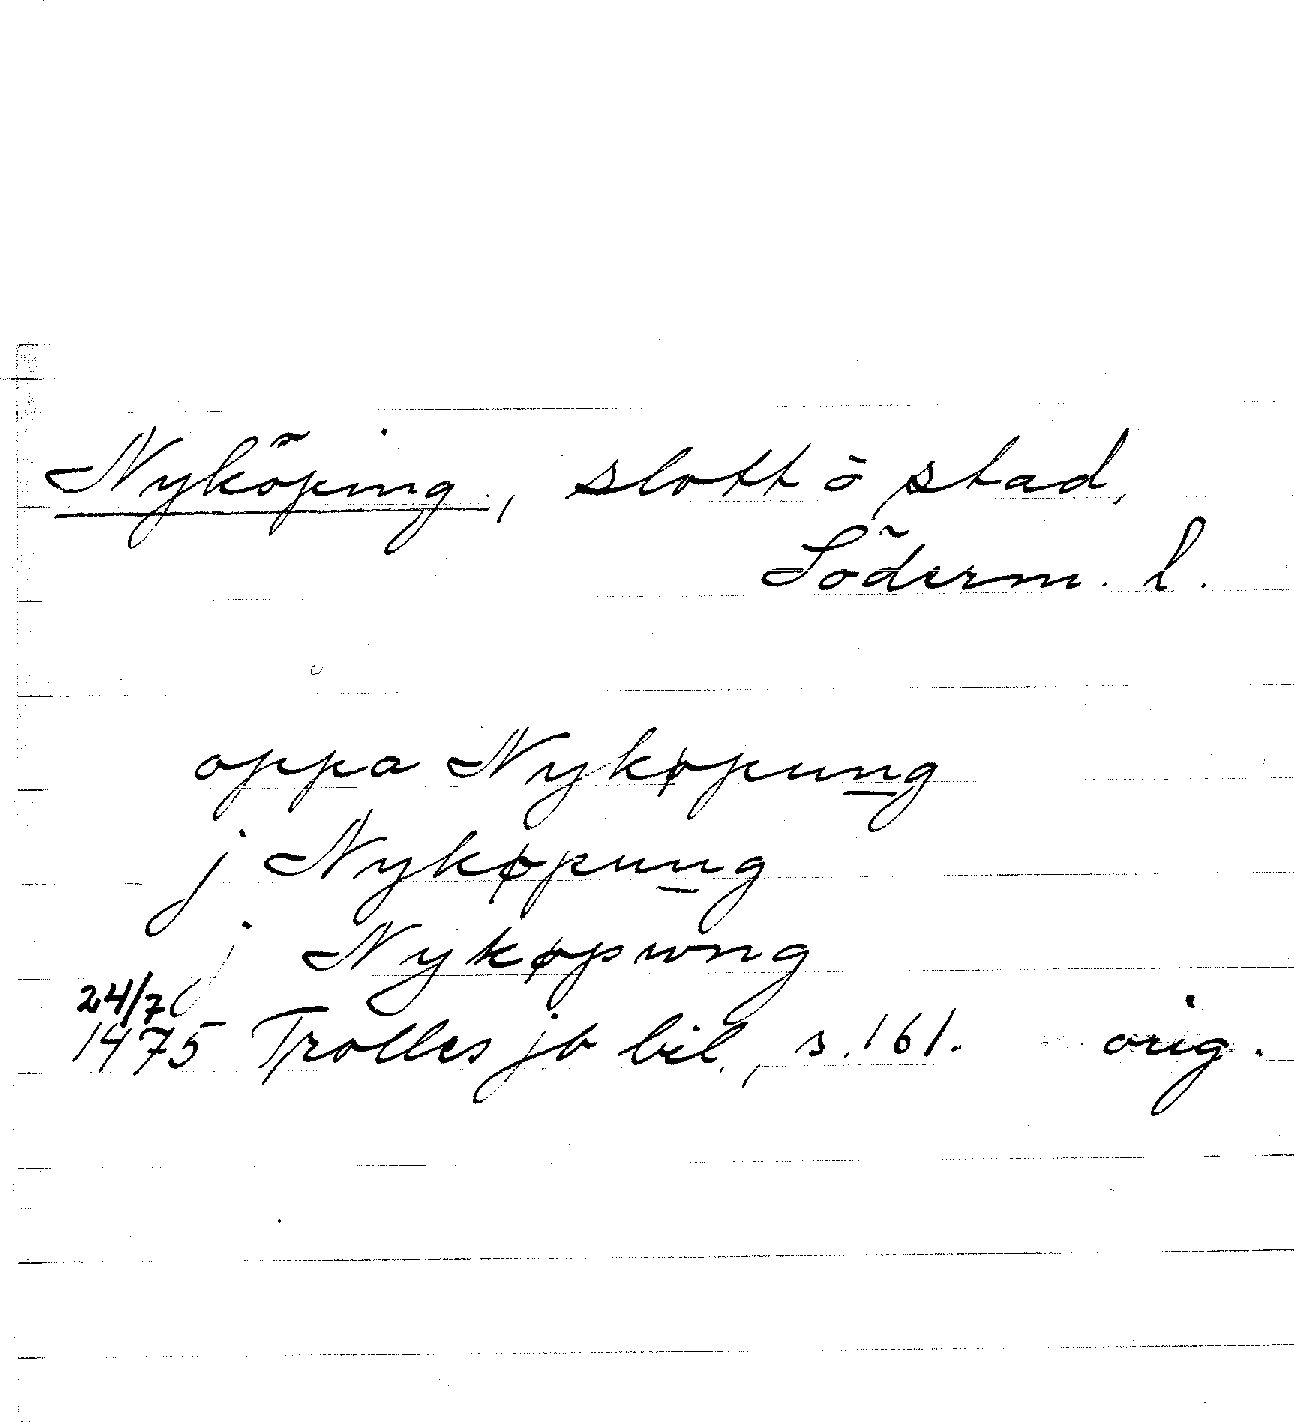 Nyköping, slott o stad,
Söderm. l.
oppa Nykøpung
j Nykøpung
j Nykøpwng
24/7
1475 Trolles jb bil., s. 161. orig.